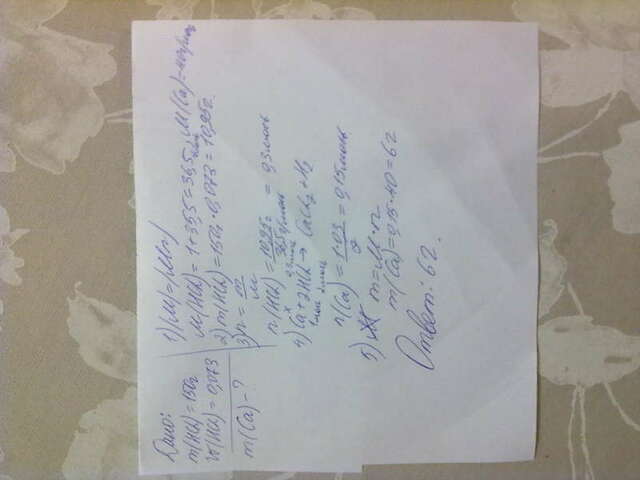 Дано:
m(HCl)=150г
w(HCl)=0,073
m(Ca)-?
1) |M|=|Mr|
M(HCl)=1+35,5=36,5 г/моль M(Ca)=40г/моль
2) m(HCl)=150·0,073=10,95г.
3) n=m/M
n(HCl)=10,95г/36,5г/моль=0,3моль
4) Ca+2HCl→CaCl2+H2
x 0,3моль
1моль 2моль
n(Ca)=1·0,3/2=0,15моль
5) m=M·n
m(Ca)=0,15·40=6г
Ответ: 6г.